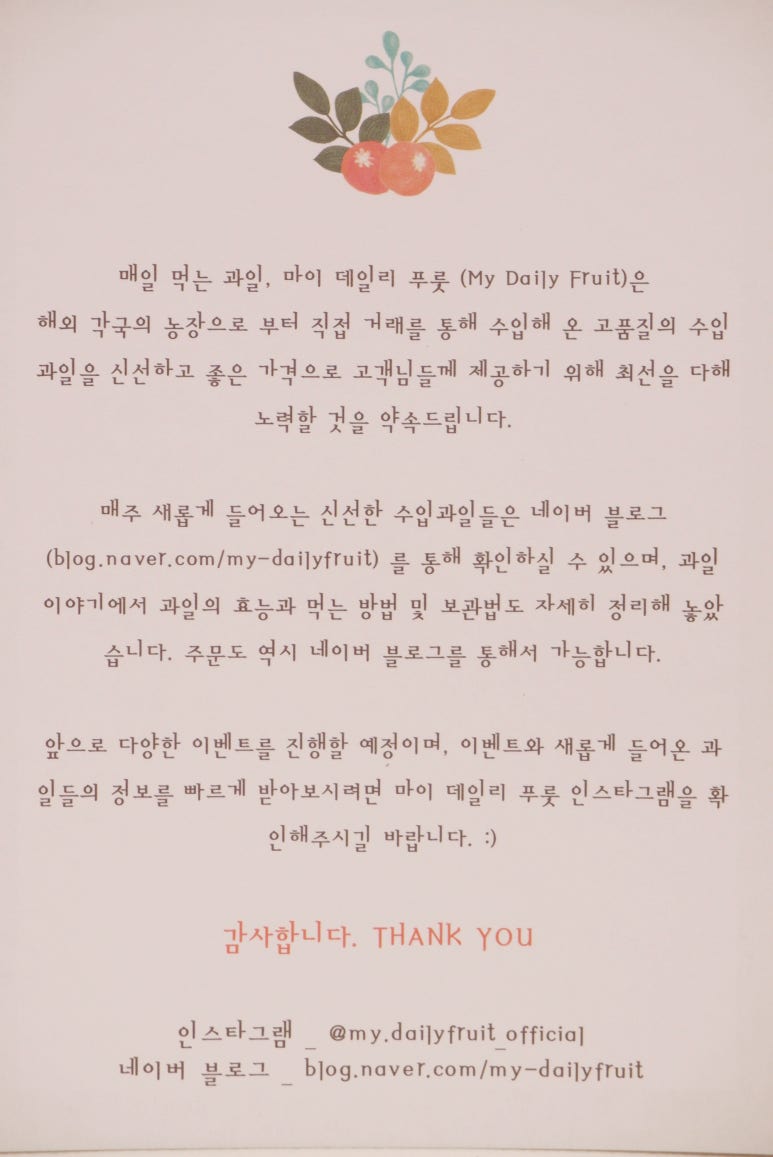 매일 먹는 과일, 마이 데일리 푸룻 (My Daily Fruit)은
해외 각국의 농장으로 부터 직접 거래를 통해 수입해 온 고품질의 수입
과일을 신선하고 좋은 가격으로 고객님들께 제공하기 위해 최선을 다해
노력할 것을 약속드립니다.
매주 새롭게 들어오는 신선한 수입과일들은 네이버 블로그
(blog.naver.com/my-dailyfruit) 를 통해 확인하실 수 있으며, 과일
이야기에서 과일의 효능과 먹는 방법 및 보관법도 자세히 정리해 놓았
습니다. 주문도 역시 네이버 블로그를 통해서 가능합니다.
앞으로 다양한 이벤트를 진행할 예정이며, 이벤트와 새롭게 들어온 과
일들의 정보를 빠르게 받아보시려면 마이 데일리 푸룻 인스타그램을 확
인해주시길 바랍니다. :)
감사합니다. THANK YOU
인스타그램 _ @my.dailyfruit_official
네이버 블로그 _ blog.naver.com/my-dailyfruit